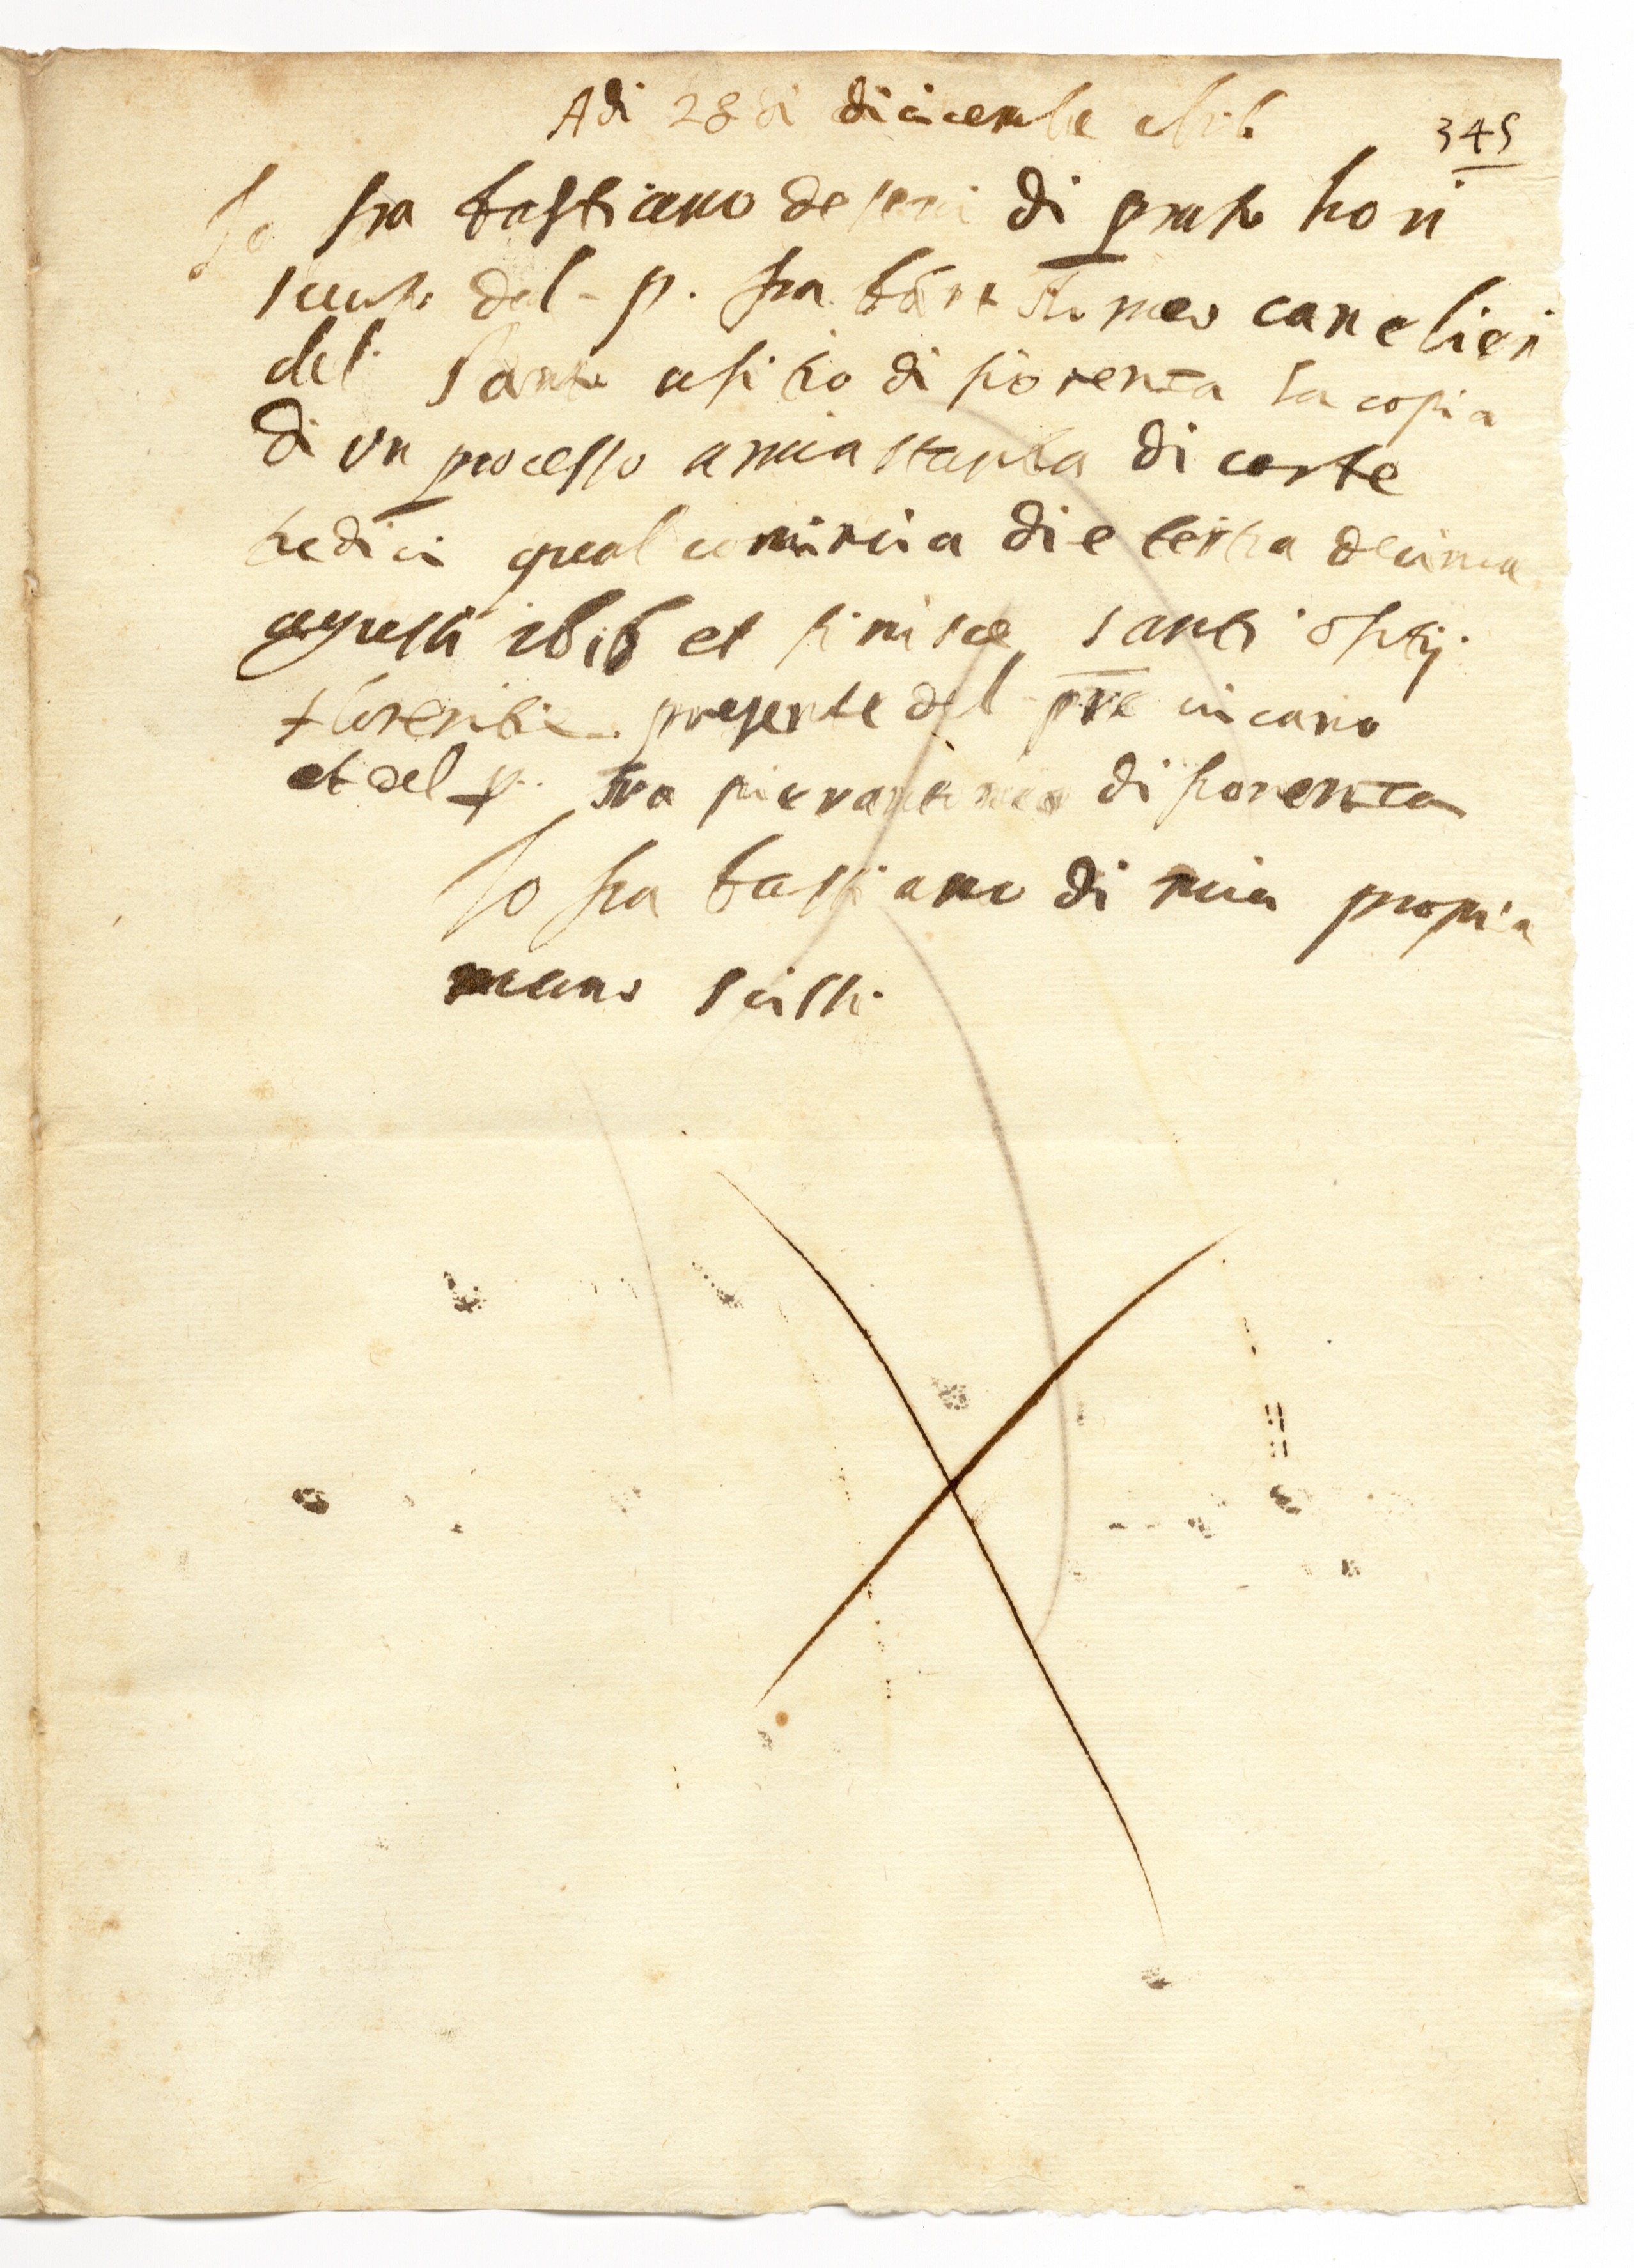 Adi 28 di dicicembe 1616
345
Io fra bastiano de seri di prato ho ri
sceuto dal p. fra bart tolomeo canelieri
del Santo ufitio di fiorenza la copia
di un processo a mia stantia di carte
sedici qual comincia die tertia decima
agusti 1616 et finisce santi offitij
florentie presente del pre vicario
et del p. fra di fiorenza
Io fra bastiano di mia propia
mano scissi